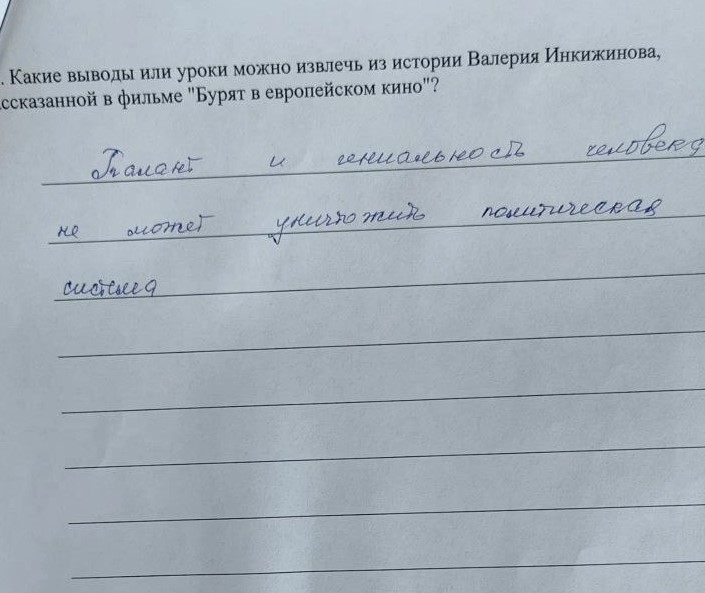 . Какие выводы или уроки можно извлечь из истории Валерия Инкижинова,
ссказанной в фильме "Бурят в европейском кино"?
Талант и гениальность человека
не может уничтожить политическая
система